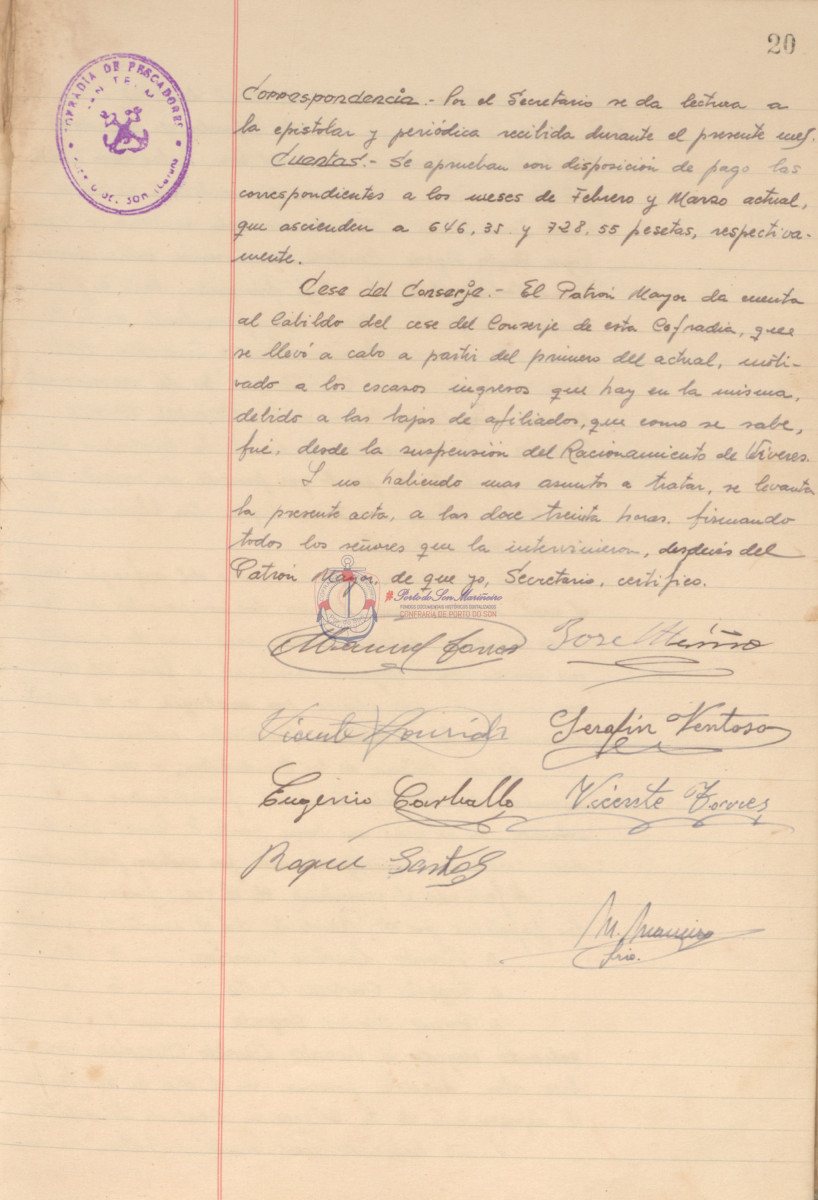 20
COFRADIA DE PESCADORES
SAN TELMO
Correspondencia.- Por el Secretario se da lectura a
la epistolar y periódica recibida durante el presente mes.
Cuentas.- Se aprueban con disposición de pago las
correspondientes a los meses de Febrero y Marzo actual,
que ascienden a 646,35 y 728,55 pesetas, respectiva-
mente.
Cese del Conserje.- El Patrón Mayor da cuenta
al Cabildo del cese del Conserje de esta Cofradia, que
se llevó a cabo a partir del primero del actual, moti-
vado a los escasos ingresos que hay en la misma,
debido a las bajas de afiliados, que como se sabe,
fué, desde la suspensión del Racionamiento de Víveres.
Y no habiendo mas asuntos a tratar, se levanta
la presente acta, a las doce treinta horas, firmando
todos los señores que la intervinieron, después del
Patrón Mayor, de que yo, Secretario, certifico.
Porto do Son Mariñeiro
FONDOS DOCUMENTAIS HISTÓRICOS DIXITALIZADOS
CONFRARÍA DE PORTO DO SON
Manuel Torres José Muñiz
Vicente Serafín Ventoso
Eugenio Carballo Vicente Torres
Roque Santos
M. Maneiro
Srio.